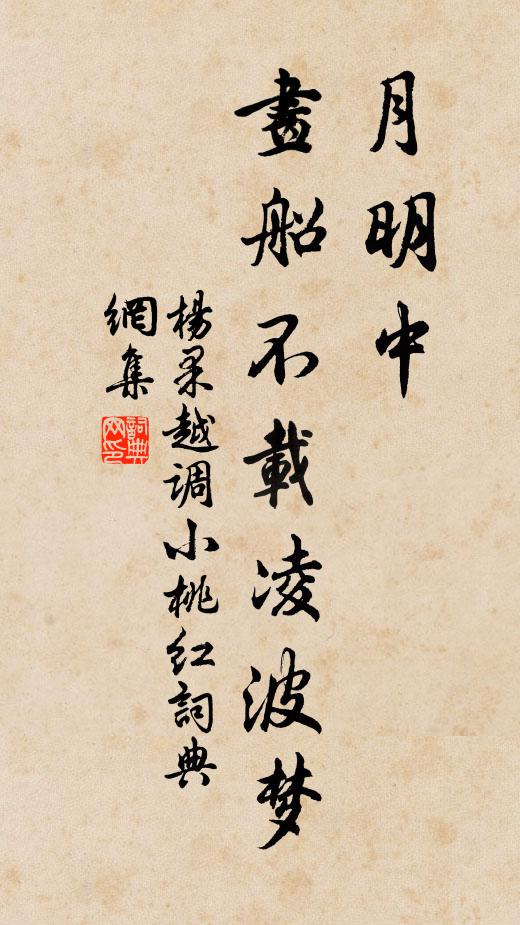 月明中
畫船不載凌波梦
楊果越调小桃红詞典
網集
詞典
网印